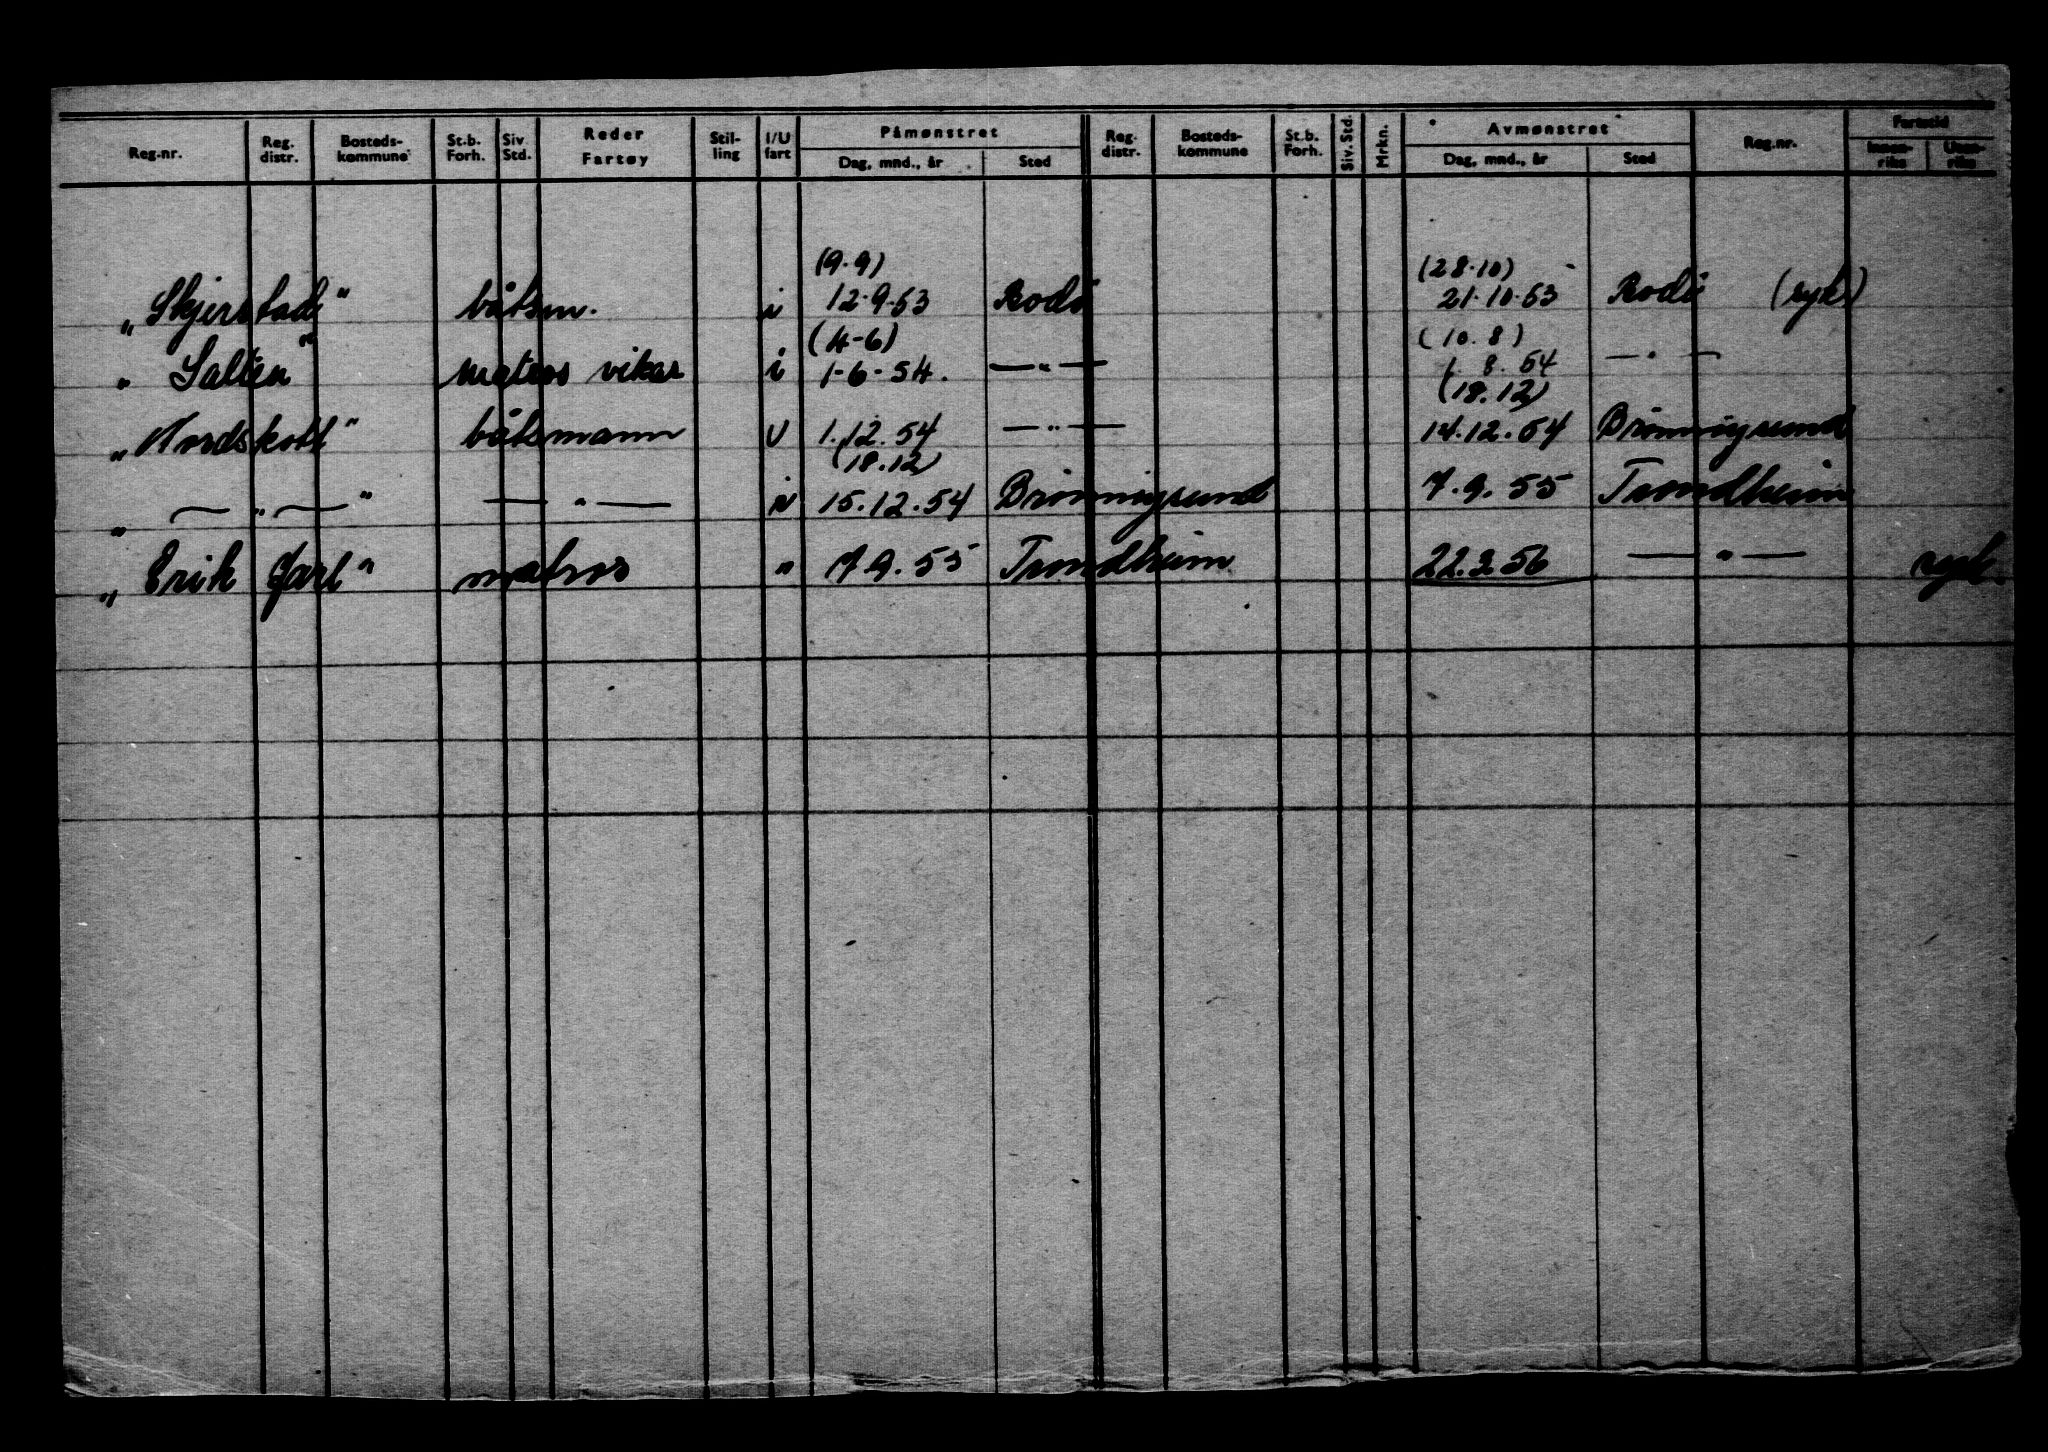 Reg.nr. Reg. distr. Bosteds-kommune St.b. Forh. Siv Std. Reder Fartøy Stil-ling I/U fart Påmønstret Dag, mnd., år Sted Reg. distr. Bosteds-kommune St.b. Forh. Siv. Std. Mrkn. Avmønstret Dag, mnd., år Sted Reg.nr. Fartstid Innen-riks Uten-riks
(9.9) (28.10)
„Skjerstad" båtsm. i 12.9.53 Bodö 21.10.53 Bodö (syk)
(4-6) (10.8)
„Salten" matros vikar i 1-6-54. —"— 1.8.54 —"—
(18.12)
„Nordskott" båtsmann U 1.12.54 —"— 14.12.54 Brönnöysund
(18.12)
„—"—" —"— i 15.12.54 Brönnöysund 7.9.55 Trondheim
„Erik Jarl" matros " 7.9.55 Trondheim 22.3.56 —"— syk.